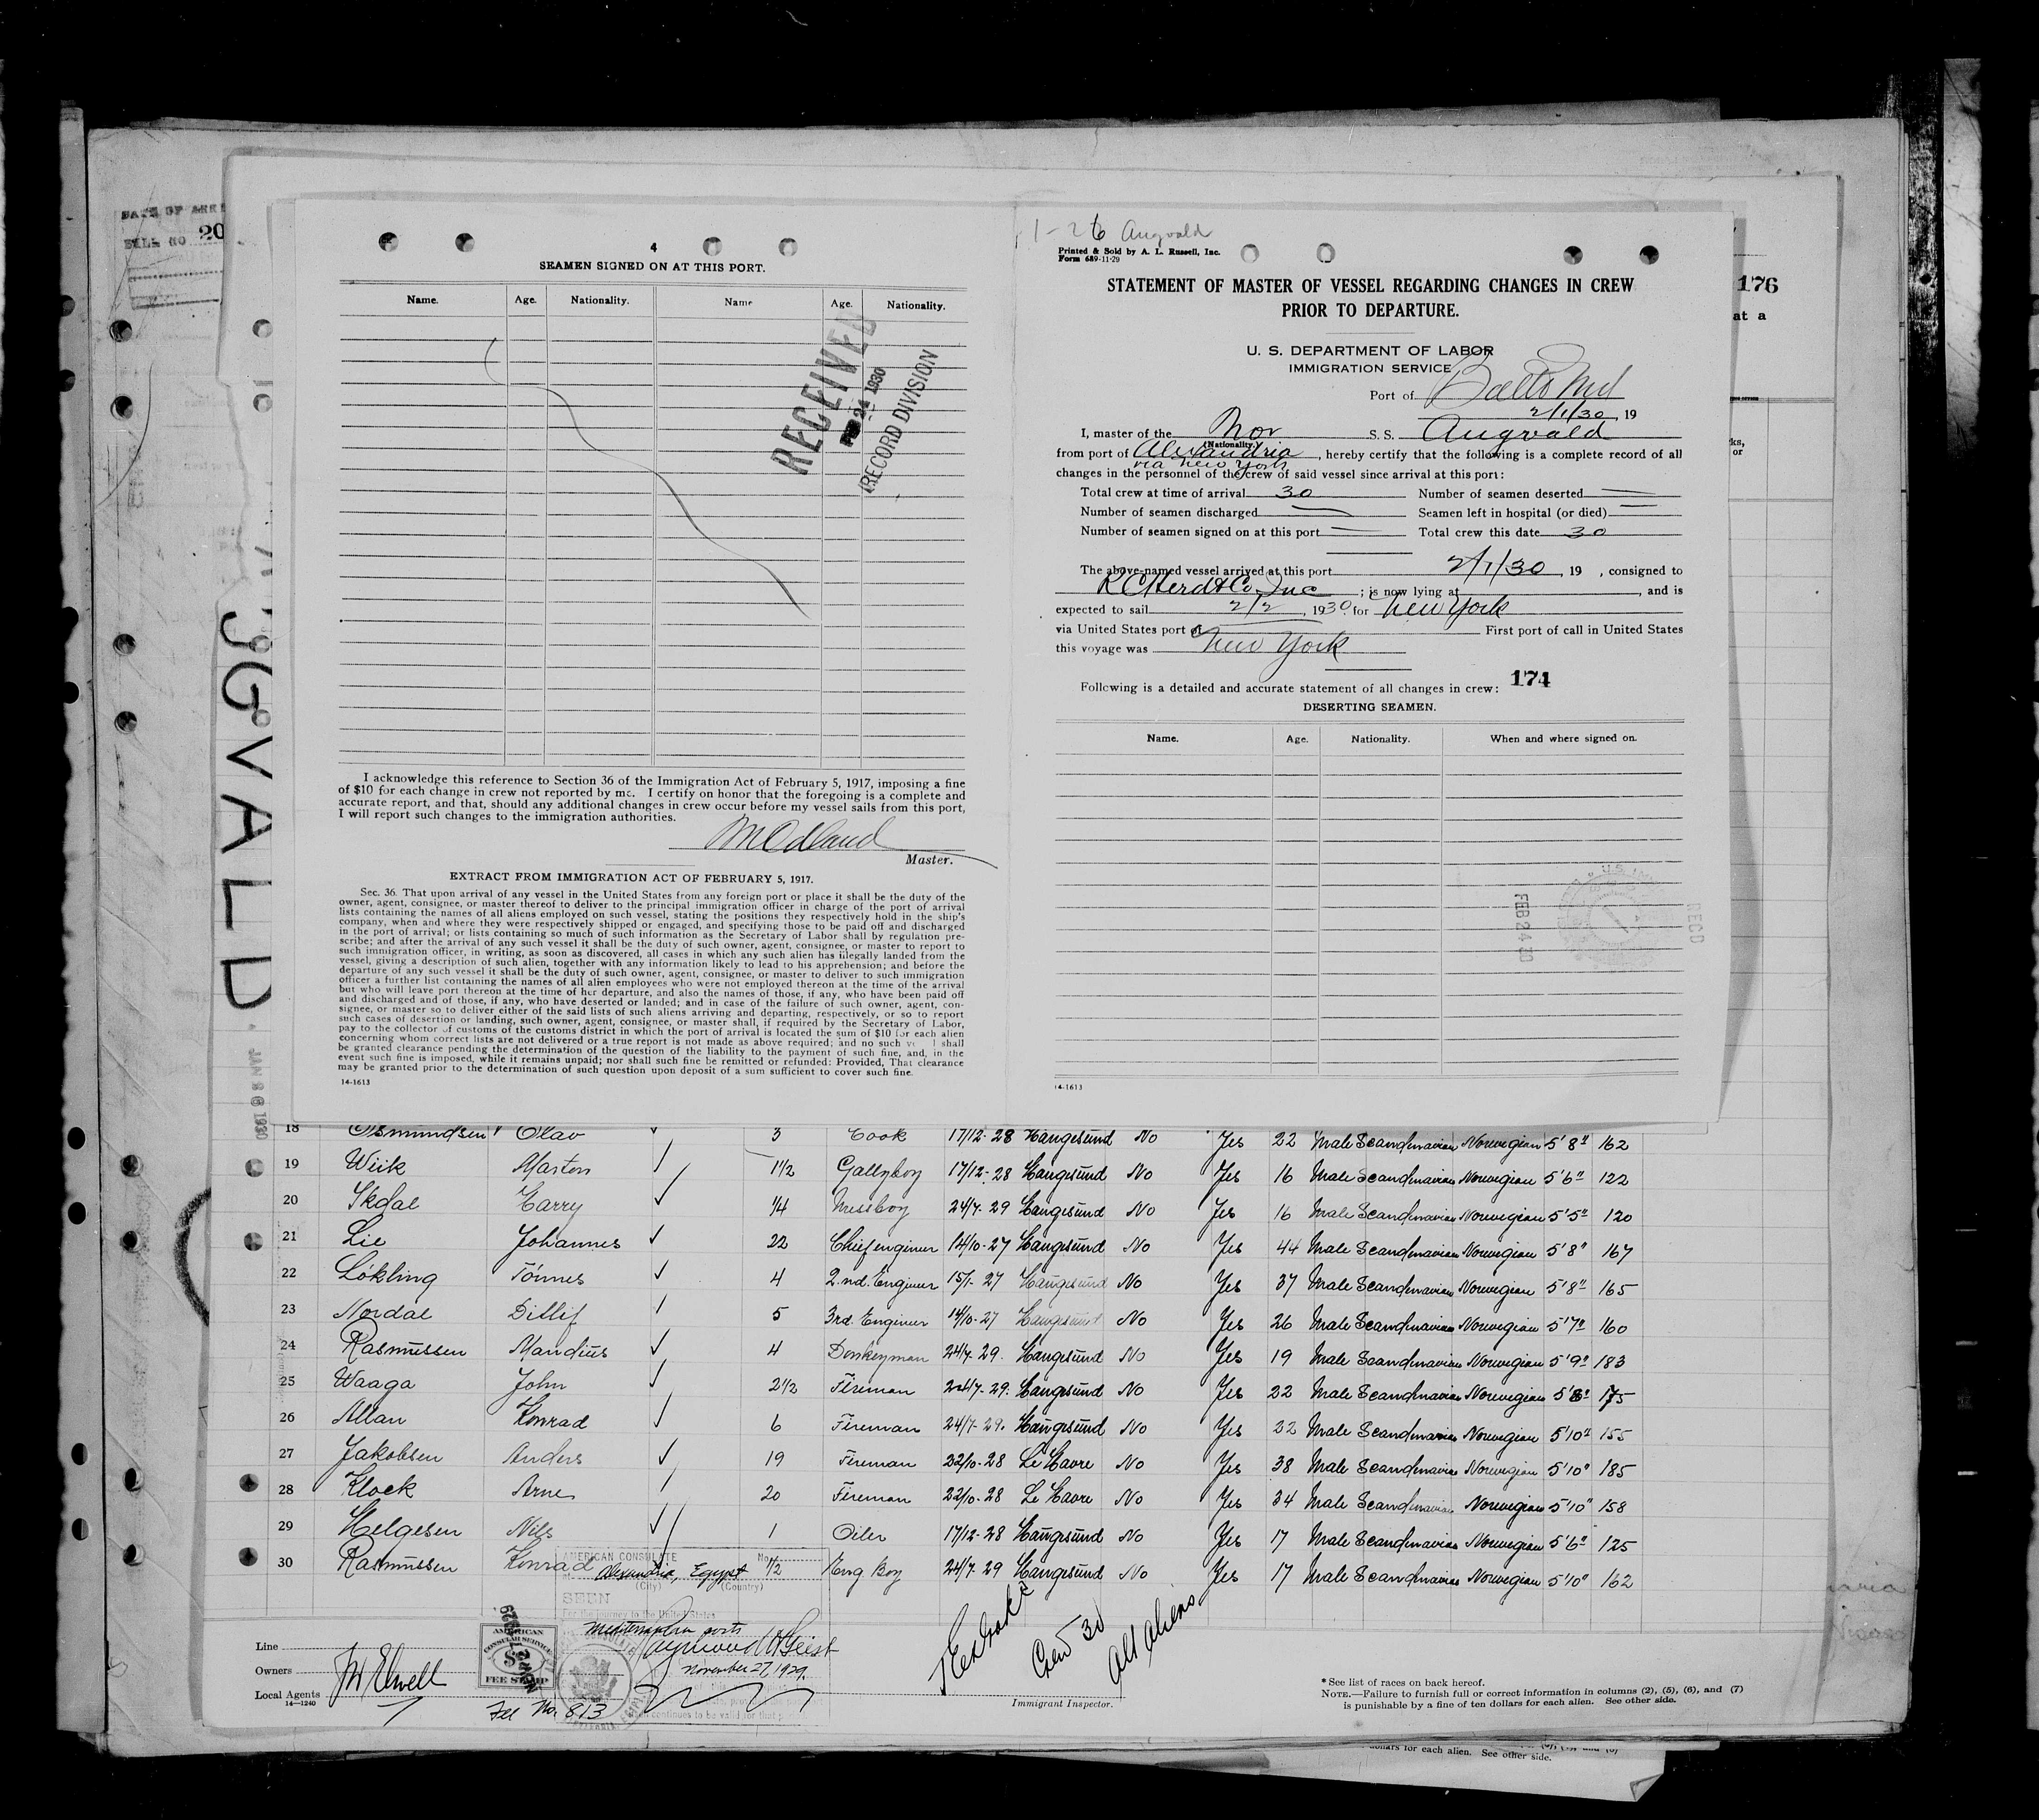 DATE OF ARR
BILL NO 20
4
SEAMEN SIGNED ON AT THIS PORT.
Name. Age. Nationality. Name Age. Nationality.
RECEIVED
FEB 24 1930
RECORD DIVISION
I acknowledge this reference to Section 36 of the Immigration Act of February 5, 1917, imposing a fine
of $10 for each change in crew not reported by me. I certify on honor that the foregoing is a complete and
accurate report, and that, should any additional changes in crew occur before my vessel sails from this port,
I will report such changes to the immigration authorities.
M Odland
Master.
EXTRACT FROM IMMIGRATION ACT OF FEBRUARY 5, 1917.
Sec. 36. That upon arrival of any vessel in the United States from any foreign port or place it shall be the duty of the
owner, agent, consignee, or master thereof to deliver to the principal immigration officer in charge of the port of arrival
lists containing the names of all aliens employed on such vessel, stating the positions they respectively hold in the ship's
company, when and where they were respectively shipped or engaged, and specifying those to be paid off and discharged
in the port of arrival; or lists containing so much of such information as the Secretary of Labor shall by regulation pre-
scribe; and after the arrival of any such vessel it shall be the duty of such owner, agent, consignee, or master to report to
such immigration officer, in writing, as soon as discovered, all cases in which any such alien has illegally landed from the
vessel, giving a description of such alien, together with any information likely to lead to his apprehension; and before the
departure of any such vessel it shall be the duty of such owner, agent, consignee, or master to deliver to such immigration
officer a further list containing the names of all alien employees who were not employed thereon at the time of the arrival
but who will leave port thereon at the time of her departure, and also the names of those, if any, who have been paid off
and discharged and of those, if any, who have deserted or landed; and in case of the failure of such owner, agent, con-
signee, or master so to deliver either of the said lists of such aliens arriving and departing, respectively, or so to report
such cases of desertion or landing, such owner, agent, consignee, or master shall, if required by the Secretary of Labor,
pay to the collector of customs of the customs district in which the port of arrival is located the sum of $10 for each alien
concerning whom correct lists are not delivered or a true report is not made as above required; and no such ve l shall
be granted clearance pending the determination of the question of the liability to the payment of such fine, and, in the
event such fine is imposed, while it remains unpaid; nor shall such fine be remitted or refunded: Provided, That clearance
may be granted prior to the determination of such question upon deposit of a sum sufficient to cover such fine.
14-1613
1-26 Augvald
Printed & Sold by A. L. Russell, Inc.
Form 689-11-29
STATEMENT OF MASTER OF VESSEL REGARDING CHANGES IN CREW
PRIOR TO DEPARTURE.
U. S. DEPARTMENT OF LABOR
IMMIGRATION SERVICE
Port of Balto Md
2/1/30, 19
I, master of the Nor S. S. Augvald
(Nationality.)
from port of Alexandria, hereby certify that the following is a complete record of all
via New York
changes in the personnel of the crew of said vessel since arrival at this port:
Total crew at time of arrival 30 Number of seamen deserted
Number of seamen discharged Seamen left in hospital (or died)
Number of seamen signed on at this port Total crew this date 30
The above-named vessel arrived at this port 2/1/30, 19 , consigned to
R C Herd & Co Inc; is now lying at , and is
expected to sail 2/2, 1930 for New York
via United States port of First port of call in United States
this voyage was New York
Following is a detailed and accurate statement of all changes in crew: 174
DESERTING SEAMEN.
Name. Age. Nationality. When and where signed on.
FEB 24 30
RECD
14-1613
176
at a
ks,
or
GVALD
JAN 26 1930
18 Osmundsen Olav 3 Cook 17/12-28 Haugesund No Yes 22 Male Scandinavian Norwegian 5'8" 162
19 Wiik Marton 1 1/2 Gallyboy 17/12-28 Haugesund No Yes 16 Male Scandinavian Norwegian 5'6" 122
20 Skdal Harry 1/4 Messboy 24/7-29 Haugesund No Yes 16 Male Scandinavian Norwegian 5'5" 120
21 Lie Johannes 22 Chief enginer 14/10-27 Haugesund No Yes 44 Male Scandinavian Norwegian 5'8" 167
22 Lökling Tönnes 4 2.nd. Enginer 15/1-27 Haugesund No Yes 37 Male Scandinavian Norwegian 5'8" 165
23 Nordal Ditlif 5 3rd. Enginer 14/10-27 Haugesund No Yes 26 Male Scandinavian Norwegian 5'7" 160
24 Rasmussen Mandius 4 Donkeyman 24/7-29. Haugesund No Yes 19 Male Scandinavian Norwegian 5'9" 183
25 Waaga John 2 1/2 Fireman 24/7-29. Haugesund No Yes 22 Male Scandinavian Norwegian 5'8" 175
26 Allan Konrad 6 Fireman 24/7-29. Haugesund No Yes 32 Male Scandinavian Norwegian 5'10" 155
27 Jakobsen Anders 19 Fireman 22/10-28 Le Havre No Yes 38 Male Scandinavian Norwegian 5'10" 185
28 Klock Arne 20 Fireman 22/10-28 Le Havre No Yes 34 Male Scandinavian Norwegian 5'10" 158
29 Helgesen Nils 1 Oiler 17/12-28 Haugesund No Yes 17 Male Scandinavian Norwegian 5'6" 125
30 Rasmussen Konrad 1/2 Eng Boy 24/7-29 Haugesund No Yes 17 Male Scandinavian Norwegian 5'10" 162
AMERICAN CONSULATE No.
Alexandria, Egypt
(City) (Country)
SEEN
For the journey to the United States
Mediterranean ports
Raymond H Geist
November 27, 1929.
continues to be valid for
AMERICAN
CONSULAR SERVICE
FEE STAMP
Fee No. 813
Line
Owners
Local Agents
14-1240
JW Elwell
Crew 30
All aliens
Immigrant Inspector.
* See list of races on back hereof.
NOTE.—Failure to furnish full or correct information in columns (2), (5), (6), and (7)
is punishable by a fine of ten dollars for each alien. See other side.
dollars for each alien. See other side.